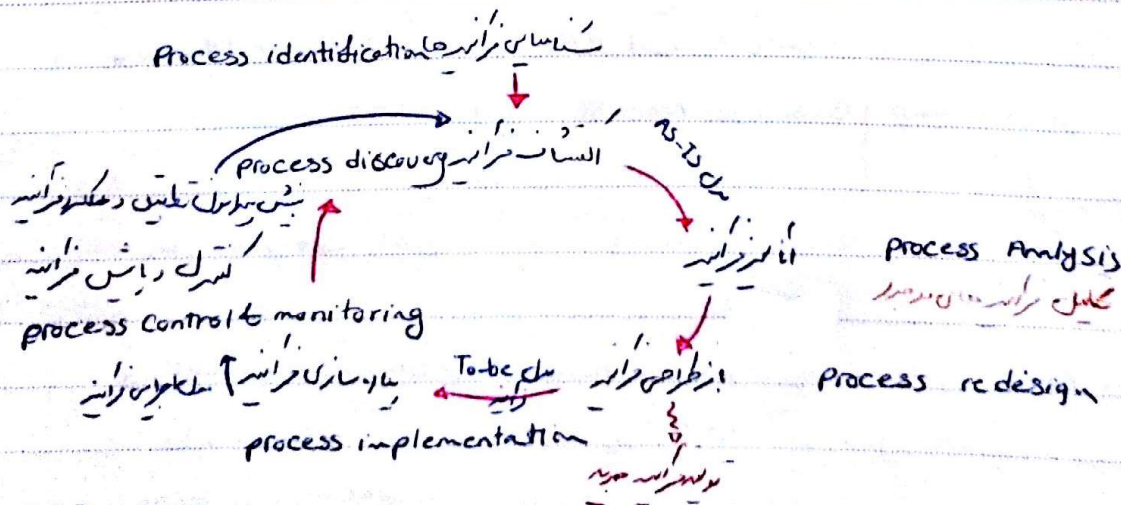 Process identification شناسایی فرآیندها
process discovery اکتشاف فرآیند
مدل AS-IS
بینش پیرامون تطبیق و عملکرد فرآیند
کنترل و پایش فرآیند
process control & monitoring
آنالیز فرآیند process Analysis
تحلیل فرآیندهای موجود
بازطراحی فرآیند process redesign
مدل To-be
فرآیند
پیاده سازی فرآیند
مدل اجرایی فرآیند
process implementation
تولید فرآیند جدید